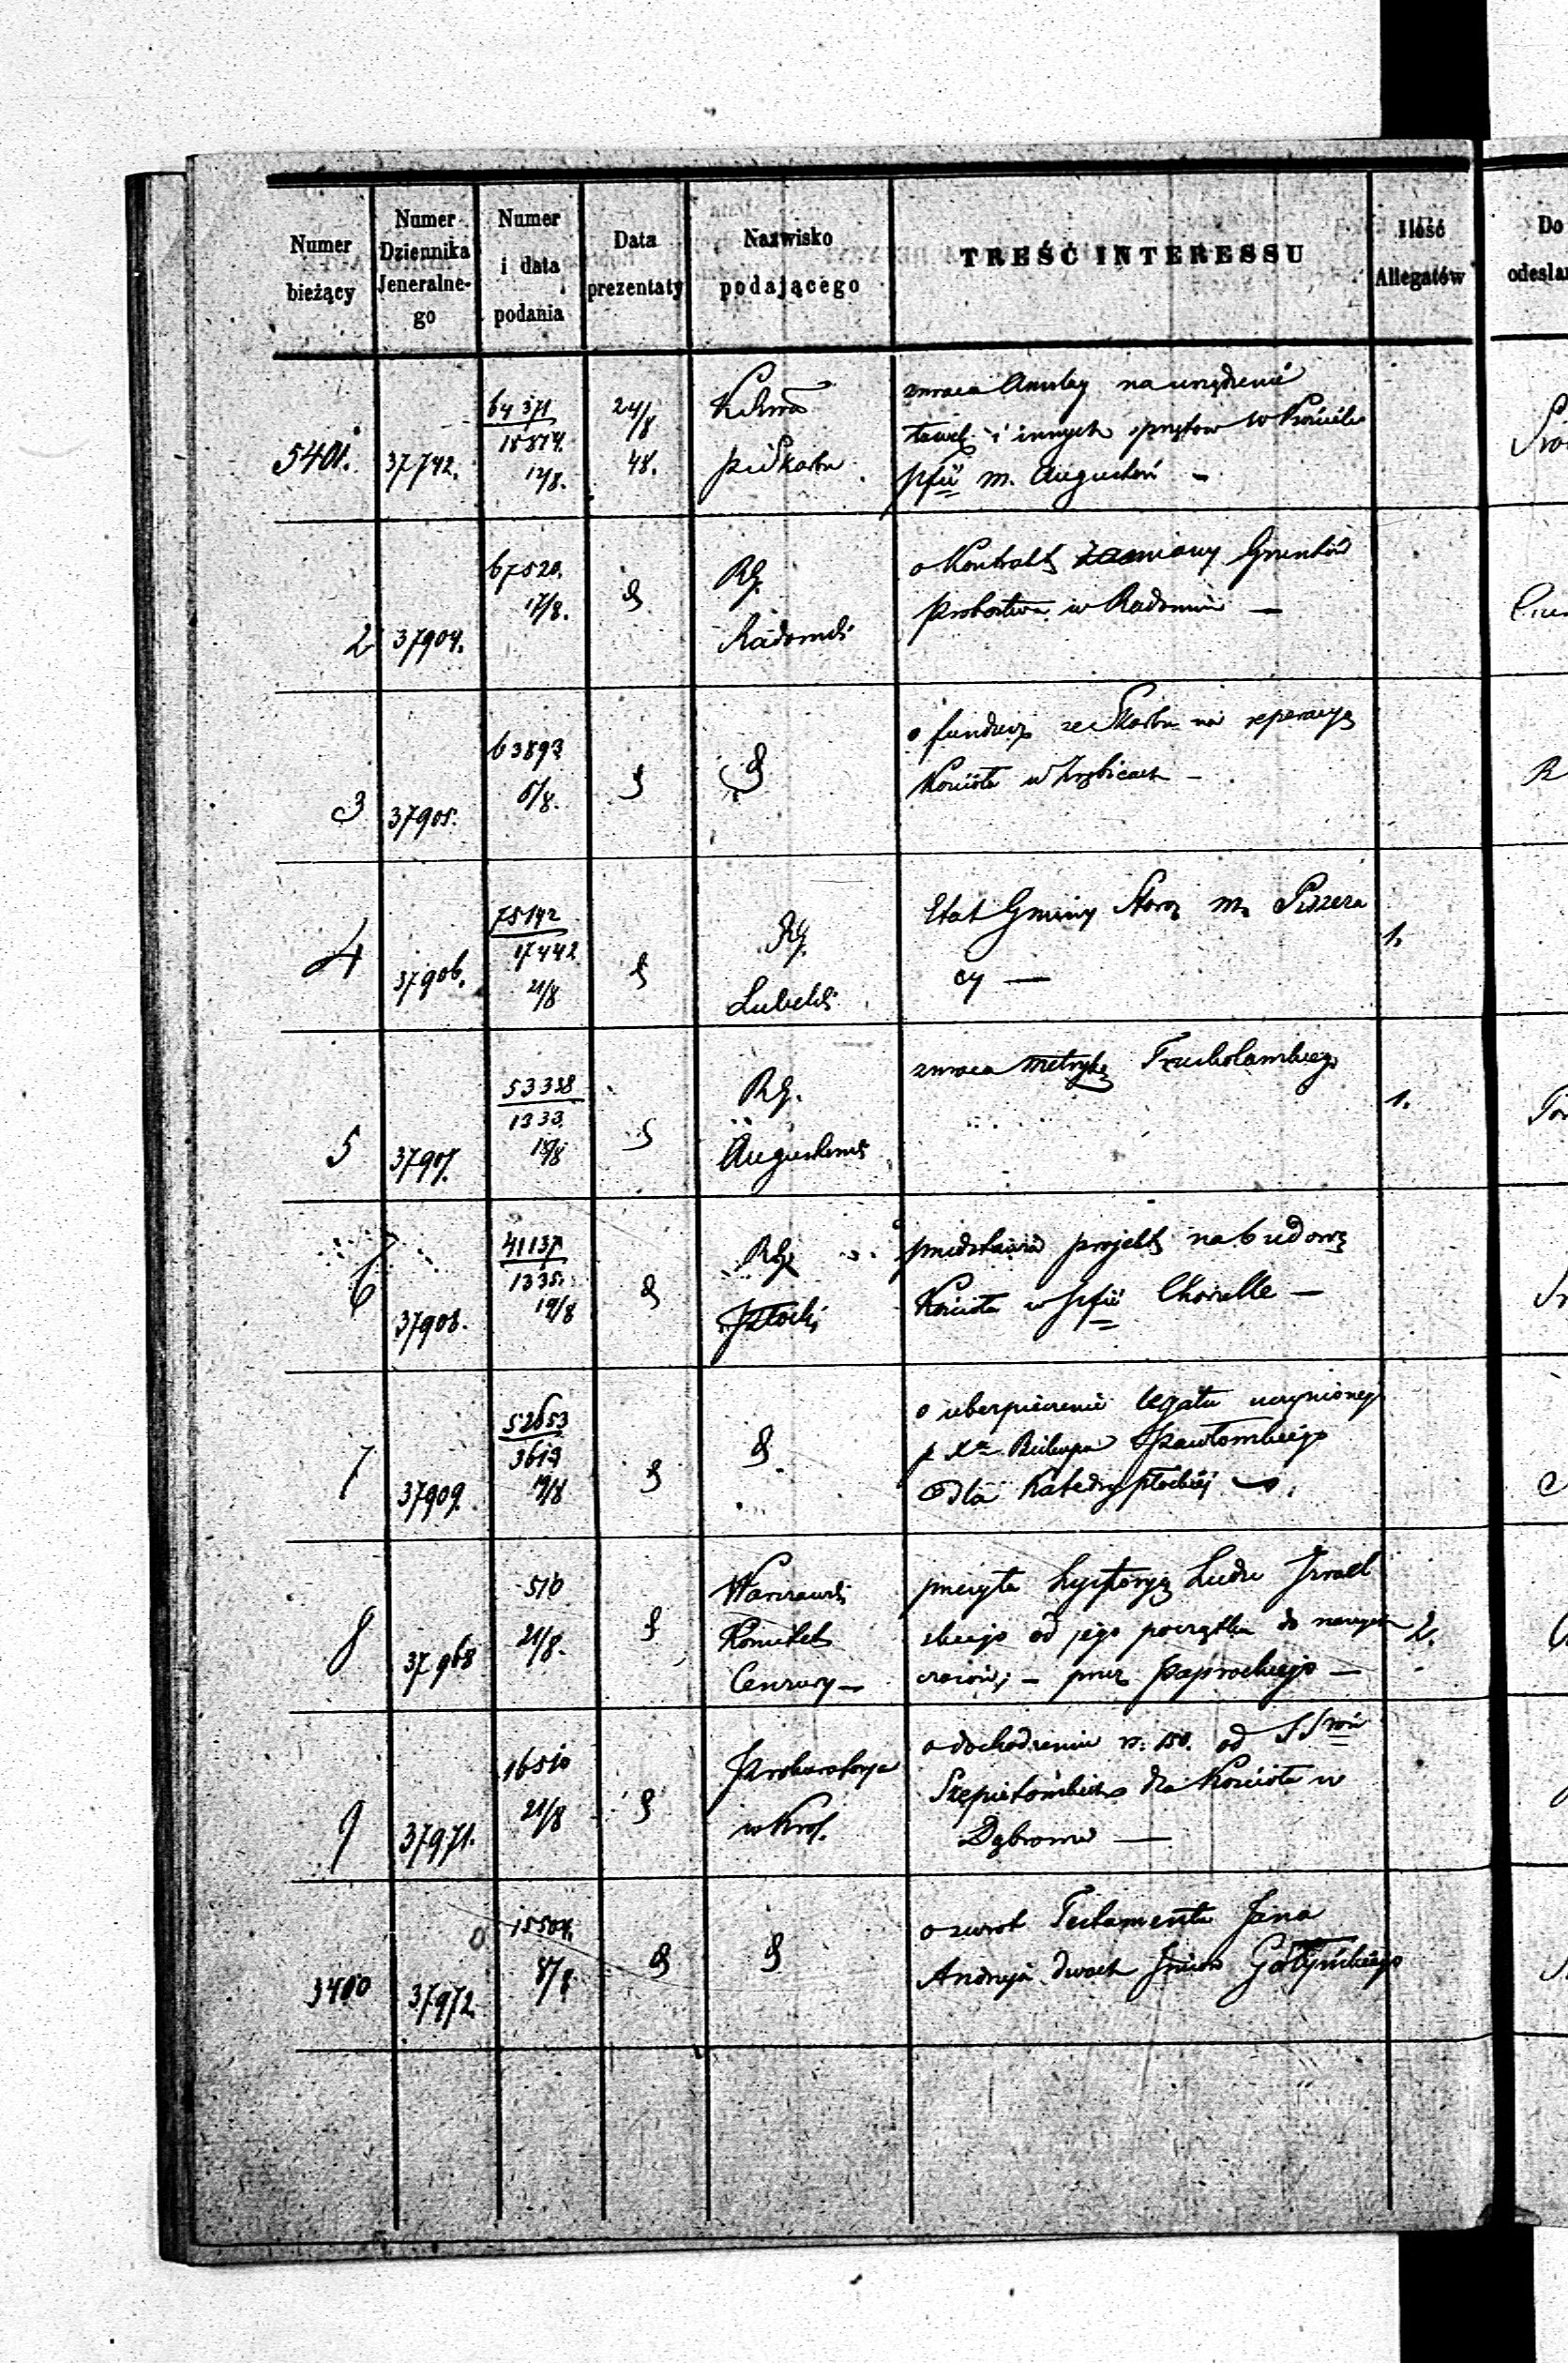 Numer bieżący
Numer Dziennika Jeneralne-go
Numer i data podania
Data prezentaty
Nazwisko podającego
TREŚĆ INTERESSU
Ilość Allegatów
Do
5401. 37742. 64371 / 15874. 12/8. 24/8 48.
zwraca na urządzenie
ławek i innych sprzętow w Kościele
pfii m. Augustow -
2 37904. 67520. 17/8. RG. Radomski
o Kontrakt zamiany Gruntów
probostwa w Radomiu —
3 37905. 63893 5/8.
o fundusz ze Skarbu na reperacyą
Kościoła w -
4 37906. 75192 / 17442 21/8 RG. Lubelski
Etat Gminy Staroz m. 1.
cy —
5 37907. 53338 / 1333. 18/8 RG. Augustowski
zwraca metrykę 1.
6 37908. 41137 / 1335. 19/8 RG. Płocki
przedstawia projekt na budowę
Kościoła w pfii Chorzelle —
7 37909. 52653 / 3613 19/8
o ubezpieczenie legatu uczynionego
p Xa Biskupa Pawłowskiego
dla Katedry płockiej
8 37968 510 21/8. Warszawski Komitet Cenzury —
przesyła hystoryą Ludu Izrael
skiego od jego początku do naszych 2.
czasów; — przez Paprockiego —
9 37971. 16510 21/8 Prokuratorya w Król.
o dochodzenie rs. 150. od SSrów
dla Kościoła w
Dąbrowie —
3410 37972 15504. 8/8
o zwrot Testamentu Jana
Andrzeja dwoch Imion Gołyńskiego